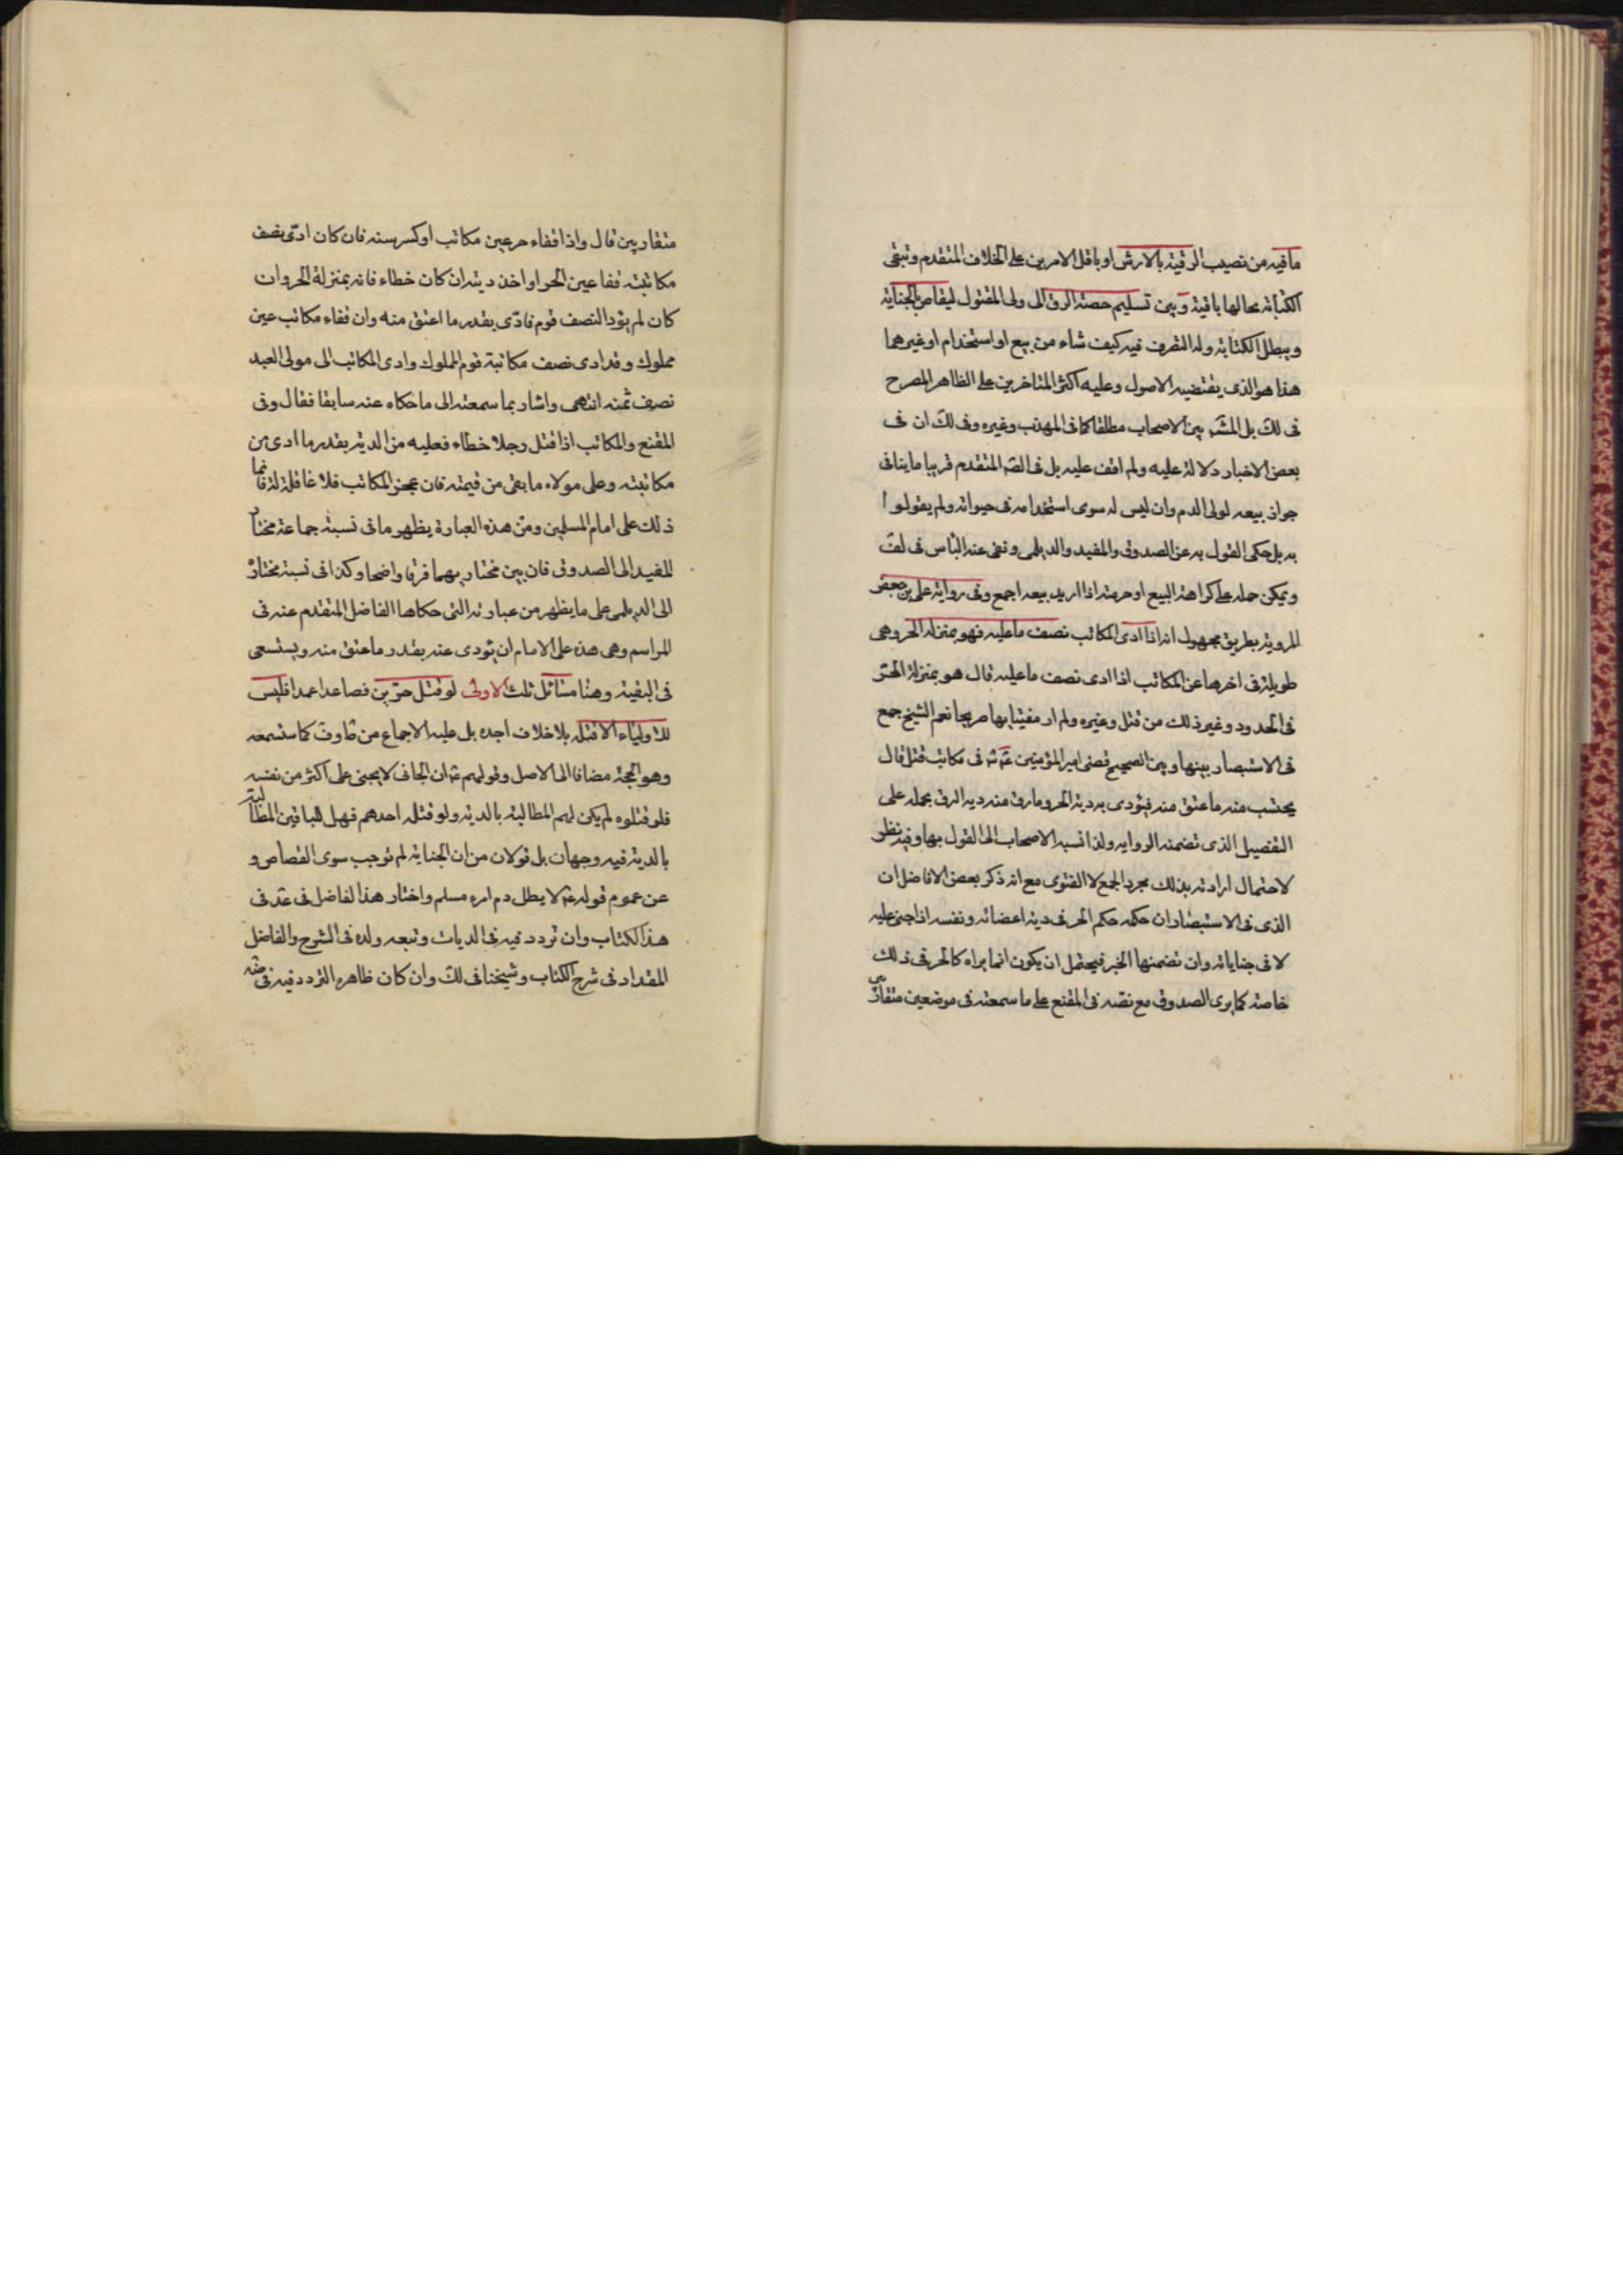 ما فيه من نصيب الرقية بالارش او باقل الامرين على الخلاف المتقدم وتبقى
الكتابة بحالها باقية وبين تسليم حصة الرق الى ولى المقتول ليقاص بالجناية
ويبطل الكتابة وله التصرف فيه كيف شاء من بيع او استخدام او غيرهما
هذا هو الذى يقتضيه الاصول وعليه اكثر المتاخرين على الظاهر المصرح
فى لك بل المشهـ بين الاصحاب مطلقا كما فى المهذب وغيره وفى لك ان فى
بعض الاخبار دلالة عليه ولم اقف عليه بل فى الصـ المتقدم قريبا ما ينافى
جواز بيعه لولى الدم وان ليس له سوى استخدامه فى حيوته ولم يقولوا
به بل حكى القول به عن الصدوق والمفيد والديلمى ونفى عنه الباس فى لف
ويمكن حمله على كراهة البيع او حرمته اذا اريد بيعه اجمع وفى رواية على بن جعفر
المروية بطريق مجهول انه اذا ادى المكاتب نصف ما عليه فهو بمنزله الحر وهى
طويلة فى اخرها عن المكاتب اذا ادى نصف ما عليه قال هو بمنزلة الحر
فى الحدود وغير ذلك من قتل وغيره ولم ار مفتيا بها صريحا نعم الشيخ جمع
فى الاستبصار بينها وبين الصحيح قضى امير المؤمنين ع فى مكاتب قتل قال
يحتسب منه ما عتق منه فيؤدى به دية الحر وما رق منه دية الرق بحمله على
التفصيل الذى تضمنه الرواية ولذا نسبه الاصحاب الى القول بها وفيه نظر
لاحتمال ارادته بذلك مجرد الجمع لا الفتوى مع انه ذكر بعض الافاضل ان
الذى فى الاستبصار ان حكمه حكم الحر فى دية اعضائه ونفسه اذا جنى عليه
لا فى جناياته وان تضمنها الخبر فيحتمل ان يكون انما يراه كالحر فى ذلك
خاصة كما يرى الصدوق مع نصه فى المقنع على ما سمعته فى موضعين متقاربين
متقاربين قال واذا فقاء حر عين مكاتب او كسر سنه فان كان ادى نصف
مكاتبته فقا عين الحر او اخذ ديته ان كان خطاء فانه بمنزلة الحر وان
كان لم يؤد النصف قوم فادى بقدر ما اعتق منه وان فقاء مكاتب عين
مملوك وقد ادى نصف مكاتبة قوم المملوك وادى المكاتب الى مولى العبد
نصف ثمنه انتهى واشار بما سمعته الى ما حكاه عنه سابقا فقال وفى
المقنع والمكاتب اذا قتل رجلا خطاء فعليه من الدية بقدر ما ادى من
مكاتبته وعلى مولاه ما بقى من قيمته فان عجز المكاتب فلا عاقلة له فانما
ذلك على امام المسلمين ومن هذه العبارة يظهر ما فى نسبة جماعة مختار
المفيد الى الصدوق فان بين مختاريهما فرقا واضحا وكذا فى نسبة مختاره
الى الديلمى على ما يظهر من عبارته التى حكاها الفاضل المتقدم عنه فى
المراسم وهى هذه على الامام ان يؤدى عنه بقدر ما عتق منه ويستسعى
فى البقية وهنا مسائل ثلث الاولى لو قتل حر حرين فصاعدا عمدا فليس
للاولياء الا قتله بلا خلاف اجده بل عليه الاجماع من كما ستسمعه
وهو الحجة مضافا الى الاصل وقولهم ع ان الجانى لا يجنى على اكثر من نفسه
فلو قتلوه لم يكن لهم المطالبة بالدية ولو قتله احدهم فهل للباقين المطالبة
بالدية فيه وجهان بل قولان من ان الجناية لم توجب سوى القصاص و
عن عموم قوله ع لا يطل دم امرء مسلم واختار هذا الفاضل فى عد فى
هذا الكتاب وان تردد فيه فى الديات وتبعه ولده فى الشرح والفاضل
المقداد فى شرح الكتاب وشيخنا فى لك وان كان ظاهره التردد فيه فى ضه